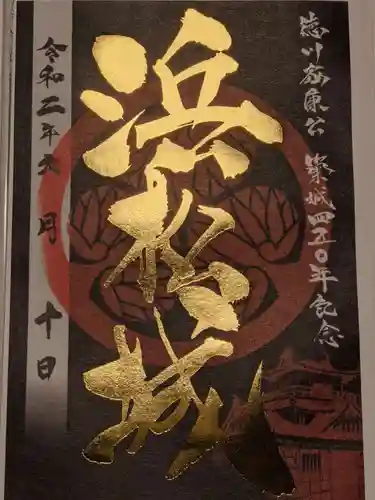 徳川家康公 築城四五〇年記念
浜松城
令和二年六月 十日